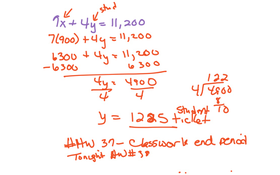 stud
7x + 4y = 11,200
7(900) + 4y = 11,200
6300 + 4y = 11,200
-6300 6300
4y = 4900
4 4
122
4√4900
8
10
y = 1225 student ticket
HW 37 - Classwork end period
Tonight HW # 38